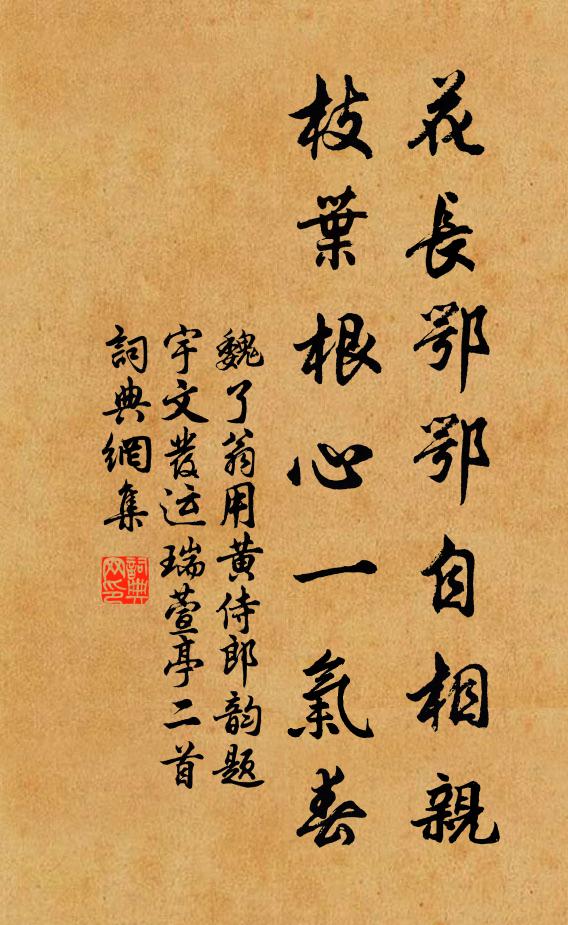 花長鄂鄂自相親
枝葉根心一氣春
魏了翁用黄侍郎韵题
宇文發运瑞萱亭二首
詞典網集
詞典网印